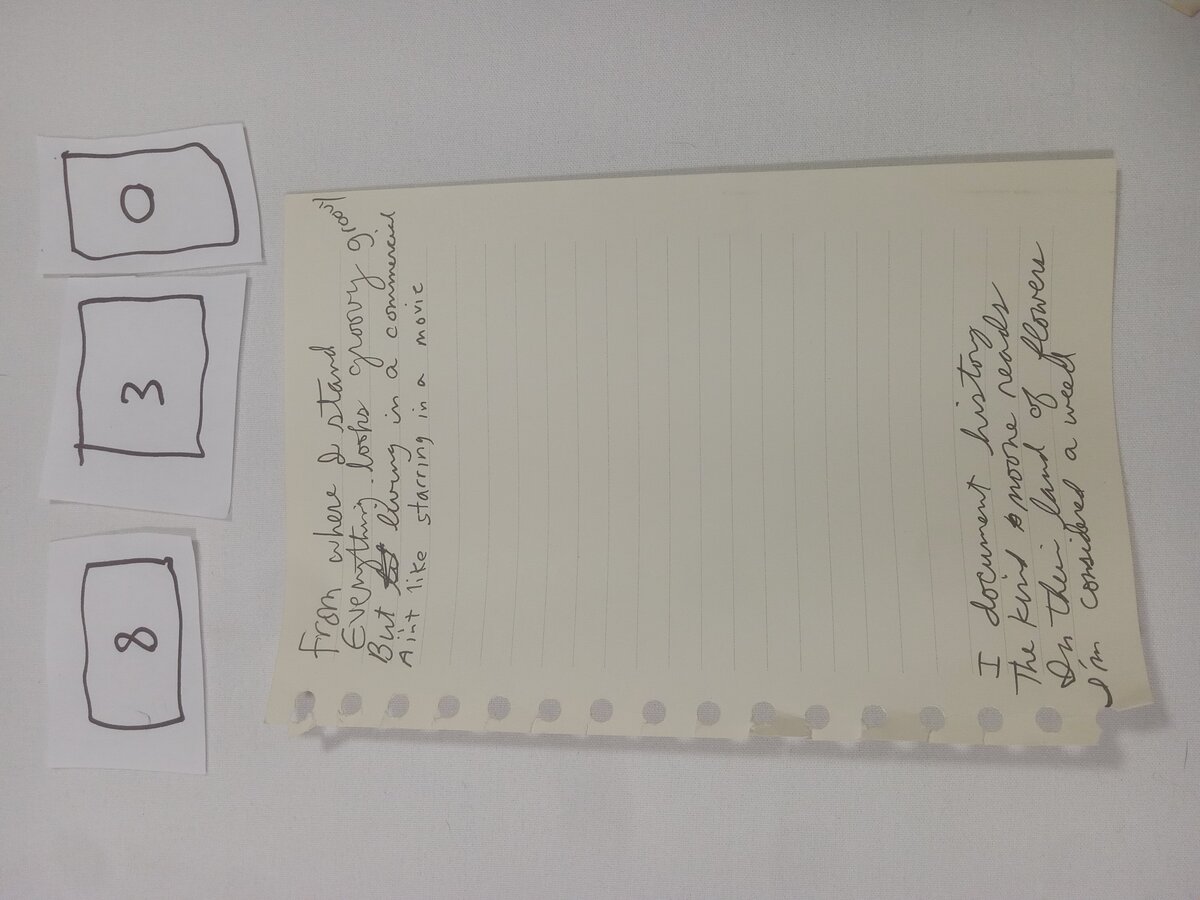 8 3 0
From where I stand
Everything looks groovy groovy
But living in a commercial
Aint like starring in a movie
I document history
The kind noone reads
In their land of flowers
I'm considered a weed